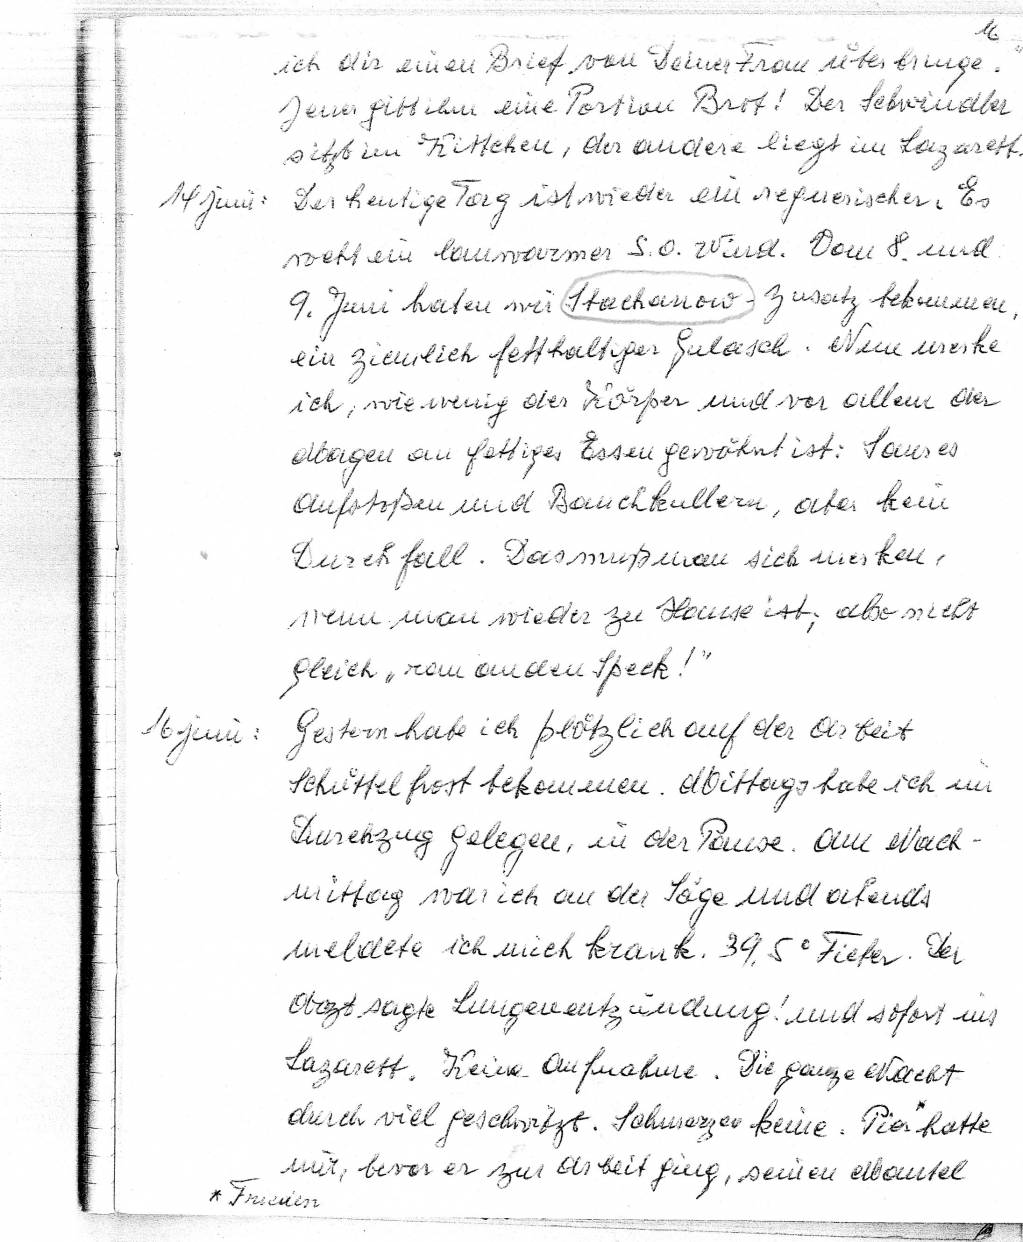 16
ich dir einen Brief von Deiner Frau überbringe."
Jener gibt ihm eine Portion Brot! Der Schwindler
sitzt im Kittchen, der andere liegt im Lazarett.
14 Juni: Der heutige Tag ist wieder ein regnerischer. Es
weht ein lauwarmer S.O. Wind. Vom 8. und
9. Juni haben wir Stachanow-Zusatz bekommen,
ein ziemlich fetthaltiger Gulasch. Nun merke
ich, wie wenig der Körper und vor allem der
Magen an fettiges Essen gewöhnt ist: Saures
Aufstoßen und Bauchkullern, aber kein
Durchfall. Das muß man sich merken,
wenn man wieder zu Hause ist; also nicht
gleich „ran an den Speck!"
16 Juni: Gestern habe ich plötzlich auf der Arbeit
Schüttelfrost bekommen. Mittags habe ich im
Durchzug gelegen, in der Pause. Am Nach-
mittag war ich an der Säge und abends
meldete ich mich krank. 39,5° Fieber. Der
Arzt sagte Lungenentzündung! und sofort ins
Lazarett. Keine Aufnahme. Die ganze Nacht
durch viel geschwitzt. Schmerzen keine. Pier* hatte
mir, bevor er zur Arbeit ging, seinen Mantel
* Friesen